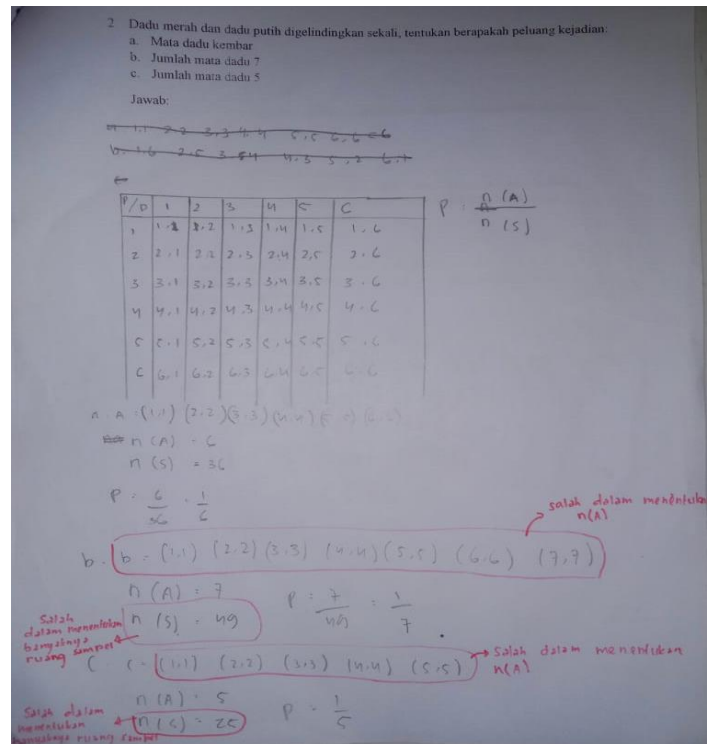 2 Dadu merah dan dadu putih digelindingkan sekali, tentukan berapakah peluang kejadian:
a. Mata dadu kembar
b. Jumlah mata dadu 7
c. Jumlah mata dadu 5
Jawab:
a. 1.1 2.2 3,3 4.4 5,5 6,6 = 6
b. 1.6 2.5 3.4 4.3 5.2 6.1
P/D 1 2 3 4 5 6
1 1.1 1.2 1.3 1.4 1.5 1.6
2 2.1 2.2 2.3 2.4 2,5 2.6
3 3.1 3.2 3.3 3,4 3,5 3.6
4 4.1 4.2 4.3 4.4 4,5 4.6
5 5.1 5,2 5,3 5,4 5.5 5.6
6 6.1 6.2 6.3 6.4 6.5 6.6
P = n (A) / n (S)
n A = (1,1) (2,2) (3,3) (4,4)
n (A) = 6
n (S) = 36
P = 6/36 = 1/6
salah dalam menentukan n(A)
b. b = (1,1) (2,2) (3,3) (4,4) (5,5) (6,6) (7,7)
n (A) = 7
P = 7/49 = 1/7
Salah dalam menentukan banyaknya ruang sampel
n (S) = 49
C c = (1,1) (2,2) (3,3) (4,4) (5,5)
Salah dalam menentukan n(A)
n (A) = 5
P = 1/5
Salah dalam menentukan banyaknya ruang sampel
n (S) = 25